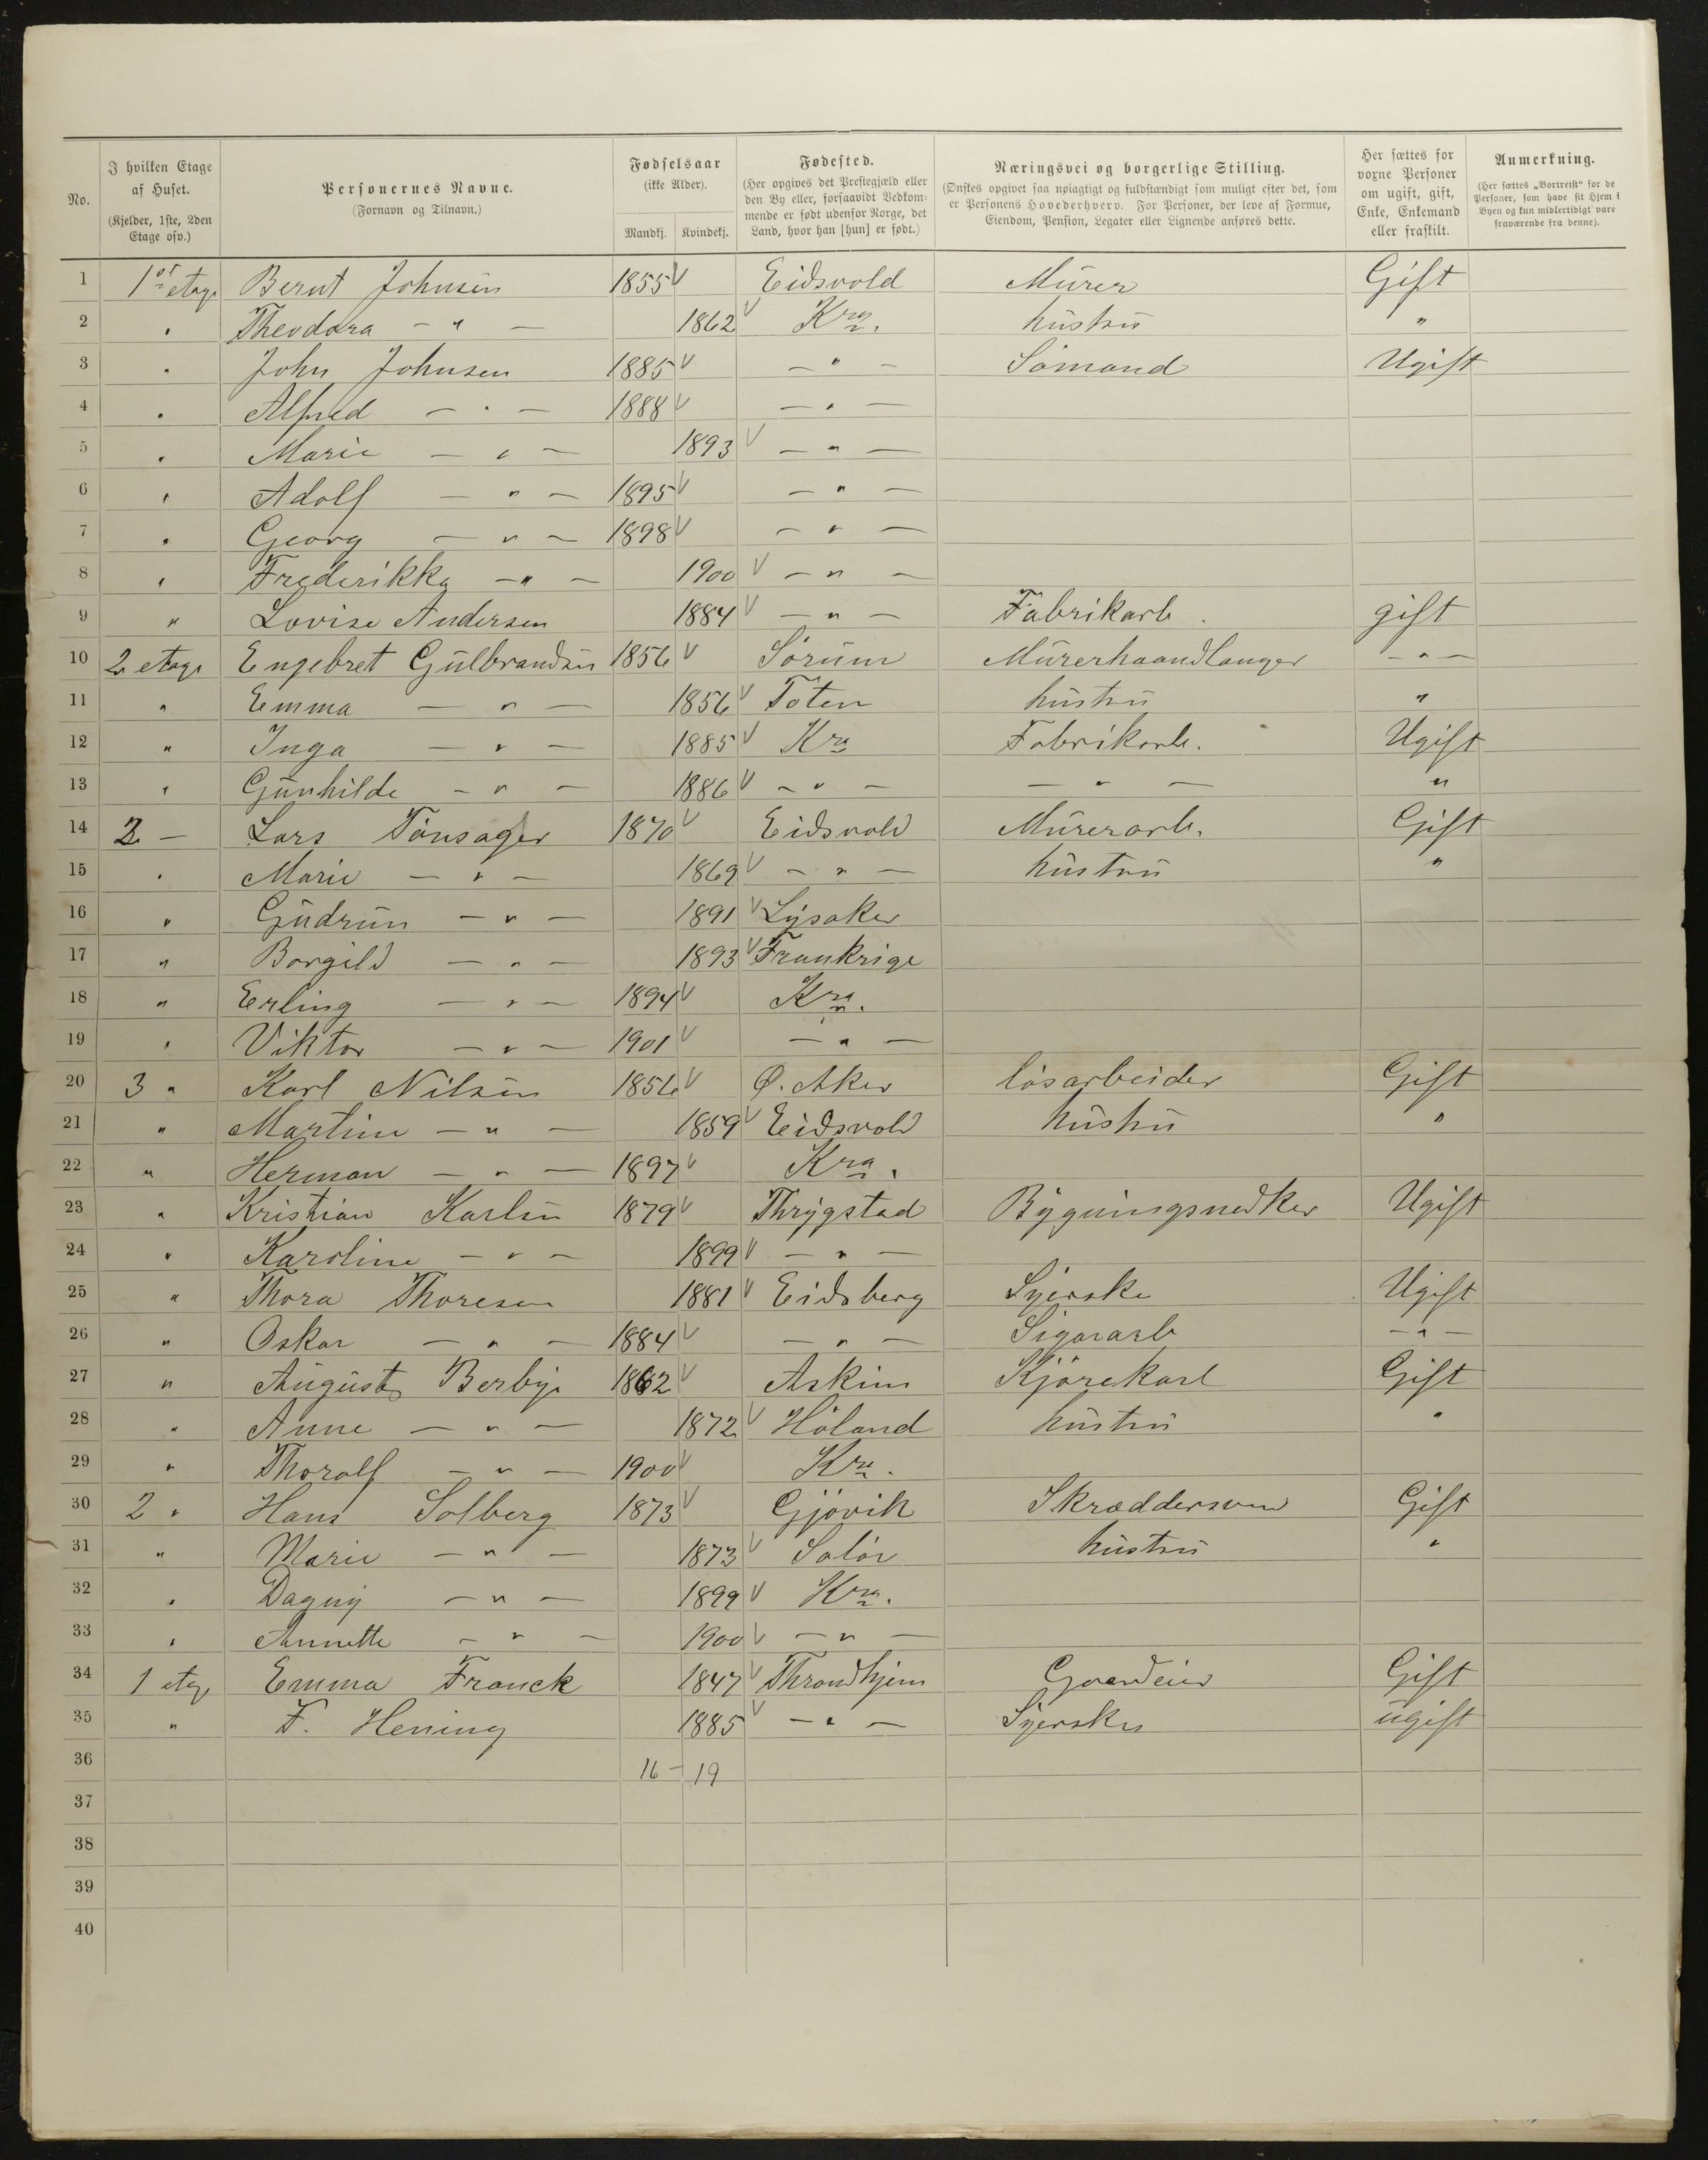 No.
I hvilken Etage af Huset. (Kjelder, 1ste, 2den Etage osv.)
Personernes Navne. (Fornavn og Tilnavn.)
Fødselsaar (ikke Alder). Mandkj. Kvindekj.
Fødested. (Her opgives det Prestegjæld eller den By eller, forsaavidt Vedkommende er født udenfor Norge, det Land, hvor han [hun] er født.)
Næringsvei og borgerlige Stilling. (Ønskes opgivet saa nøiagtigt og fuldstændigt som muligt efter det, som er Personens Hovederhverv. For Personer, der leve af Formue, Eiendom, Pension, Legater eller Lignende anføres dette.
Her sættes for voxne Personer om ugift, gift, Enke, Enkemand eller fraskilt.
Anmerkning. (Her sættes „Bortreist“ for de Personer, som have sit Hjem i Byen og kun midlertidigt være fraværende fra denne).
1 1st etage Bernt Johnsen 1855 V Eidsvold Murer Gift
2 " Theodora — " — 1862 V Kra. hustru "
3 " John Johnsen 1885 V — " — Sömand Ugift
4 " Alfred — " — 1888 V — " —
5 " Marie — " — 1893 V — " —
6 " Adolf — " — 1895 V — " —
7 " Georg — " — 1898 V — " —
8 " Frederikke — " — 1900 V — " —
9 " Lovise Andersen 1884 V — " — Fabrikarb. gift
10 2 etage Engebret Gulbrandsen 1856 V Sörum Murerhaandlanger — " —
11 " Emma — " — 1856 V Toten hustru "
12 " Inga — " — 1885 V Kra Fabrikarb. Ugift
13 " Gunhilde — " — 1886 V — " — — " — "
14 2 — Lars Tönsager 1870 V Eidsvold Murerarb. Gift
15 " Marie — " — 1869 V — " — hustru "
16 " Gudrun — " — 1891 V Lysaker
17 " Borgild — " — 1893 V Frankrige
18 " Erling — " — 1894 V Kra.
19 " Viktor — " — 1901 V — " —
20 3 " Karl Nilsen 1856 V Ø. Aker lösarbeider Gift
21 " Martine — " — 1859 V Eidsvold hustru "
22 " Herman — " — 1897 V Kra.
23 " Kristian Karlsen 1879 V Thrygstad Bygningsnedker Ugift
24 " Karoline — " — 1899 V — " —
25 " Thora Thoresen 1881 V Eidsberg Syerske Ugift
26 " Oskar — " — 1884 V — " — Sigararb — " —
27 " August Berbye 1862 V Askim Kjörekarl Gift
28 " Anne — " — 1872 V Höland hustru "
29 " Thoralf — " — 1900 V Kra.
30 2 " Hans Solberg 1873 V Gjövik Skræddersven Gift
31 " Marie — " — 1873 V Solör hustru "
32 " Dagny — " — 1899 V Kra.
33 " Annette — " — 1900 V — " —
34 1 etage Emma Franck 1847 V Throndhjem Gaardeier Gift
35 " F. Hening 1885 V — " — Syerske ugift
36 16 — 19
37
38
39
40